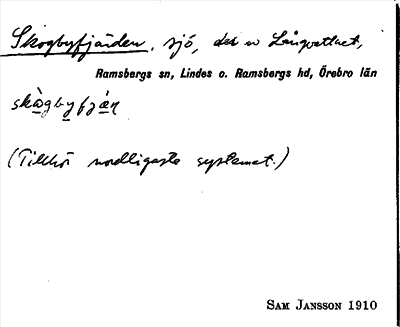 Skogbyfjärden, sjö, del av Långvattnet,
Ramsbergs sn, Lindes o. Ramsbergs hd, Örebro län
skògbyfján
(Tillhör nordligaste systemet.)
SAM JANSSON 1910